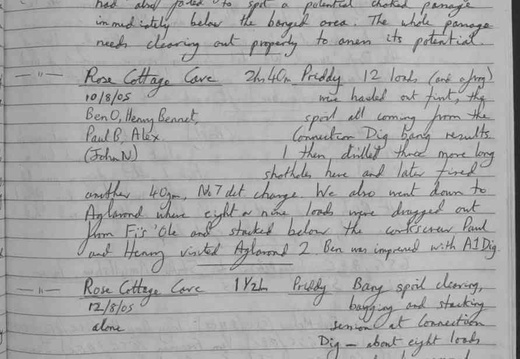 had also failed to spot a potential choked passage
immediately below the banged area. The whole passage
needs clearing out properly to assess its potential.
— " — Rose Cottage Cave 2h 40m Priddy 12 loads (and a frog)
10/8/05 were hauled out first, the
Ben O, Henry Bennet, spoil all coming from the
Paul B, Alex Connection Dig bang results
(John N) I then drilled three more long
shotholes here and later fired
another 40gm, No7 det. charge. We also went down to
Aglarond where eight or nine loads were dragged out
from Fi's 'Ole and stacked below the corkscrew. Paul
and Henry visited Aglarond 2. Ben was impressed with A1 Dig.
— " — Rose Cottage Cave 1½hr Priddy Bang spoil clearing,
12/8/05 bagging and stacking
alone session at Connection
Dig – about eight loads